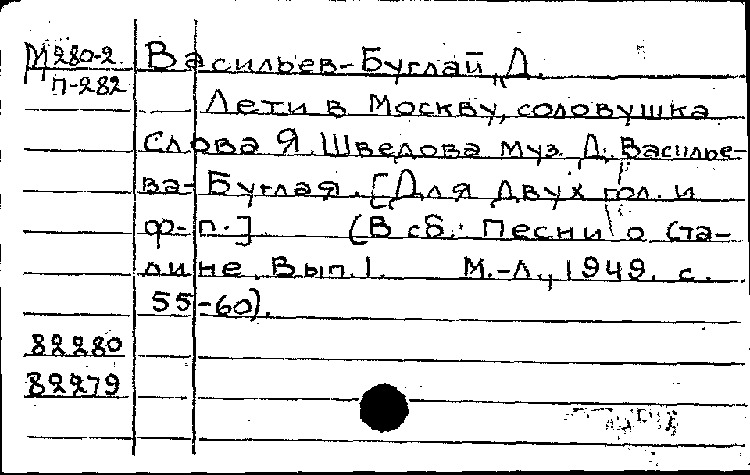 М280-2 Васильев-Буглай, Д.
П-282
Лети в Москву, соловушка
Слова Я. Шведова муз. Д. Василье-
ва-Буглая. [Для двух гол. и
ф-п.] (В сб.: Песни о Ста-
лине. Вып. 1. М.-Л., 1949. с.
55-60).
82280
82279